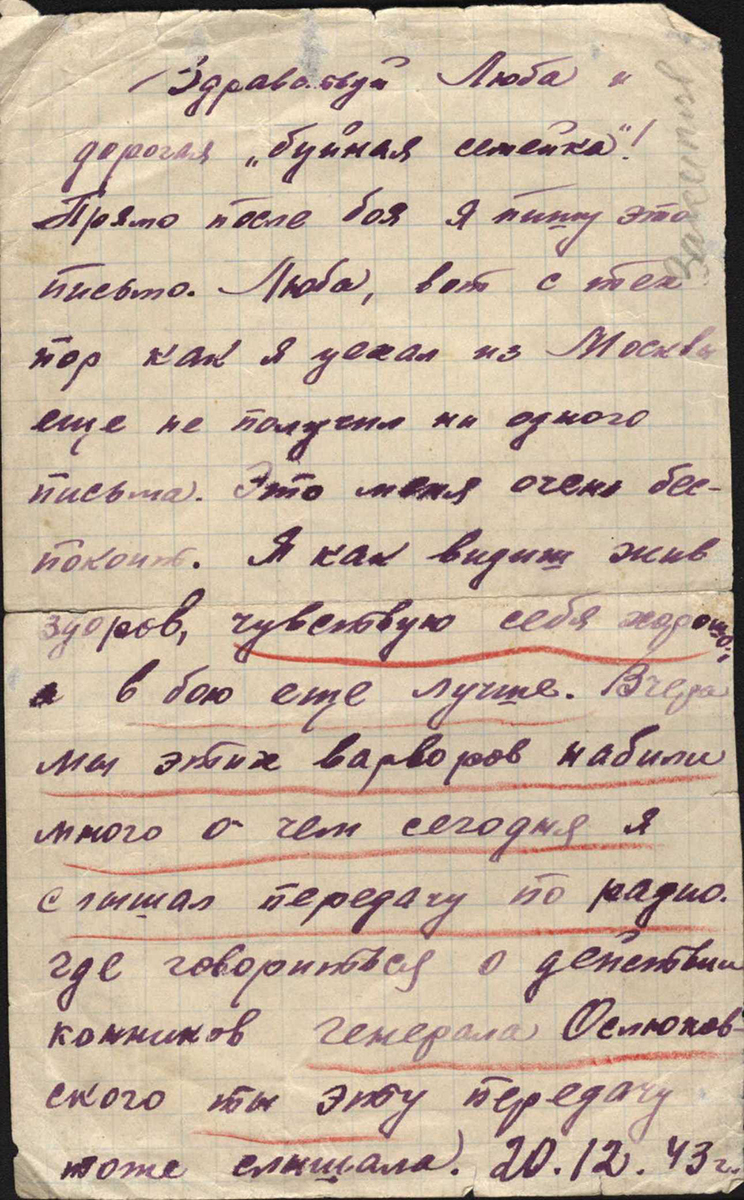 Здравствуй Люба и
дорогая „буйная семейка"!
Прямо после боя я пишу это
письмо. Люба, вот с тех
пор как я уехал из Москвы
еще не получил ни одного
письма. Это меня очень бес-
покоит. Я как видиш жив
здоров, чувствую себя хорошо,
а в бою еще лучше. Вчера
мы этих варворов набили
много о чем сегодня я
слышал передачу по радио.
где говориться о действии
конников генерала Ослюков-
ского ты эту передачу
тоже слышала. 20.12.43г.